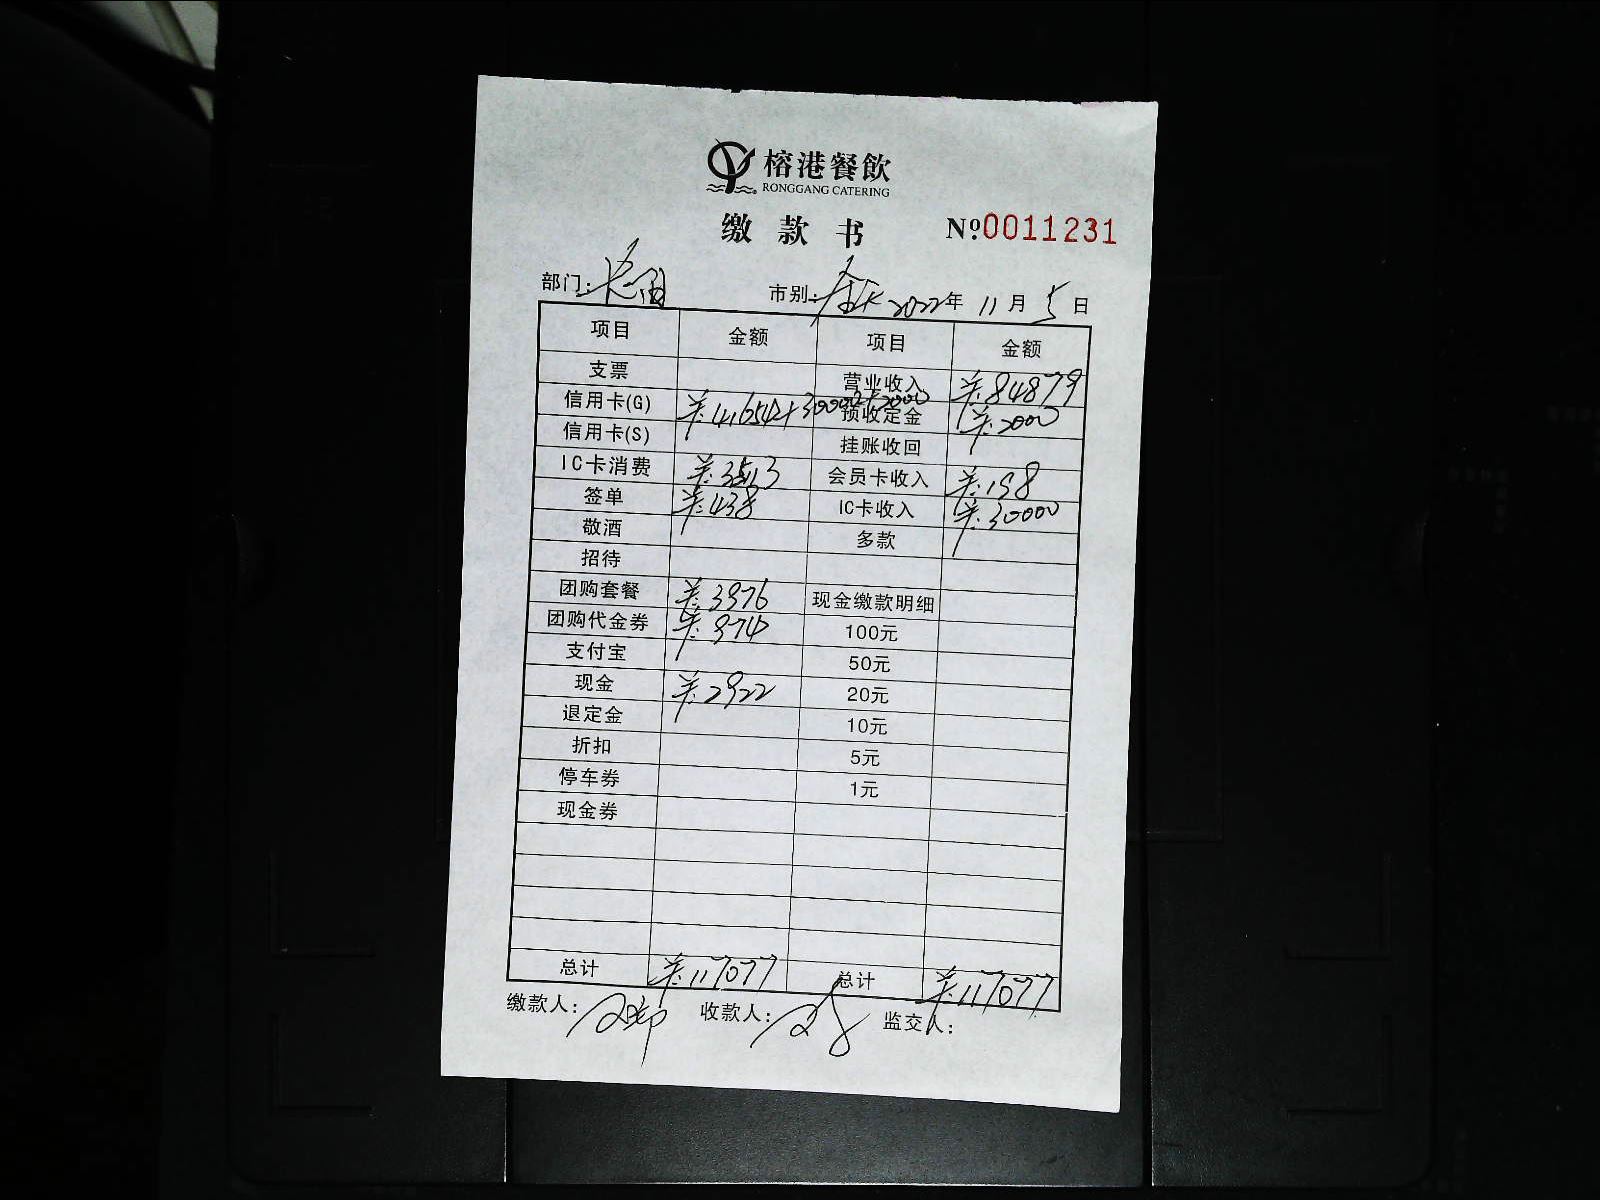 榕港餐飲
RONGGANG CATERING
缴款书 №0011231
部门: 市别: 全天 2022年 11月 5日
项目 金额 项目 金额
支票 营业收入 ¥:84879
信用卡(G) ¥:41654+30000+2000 预收定金 ¥:2000
信用卡(S) 挂账收回
IC卡消费 ¥:35113 会员卡收入 ¥:198
签单 ¥:438 IC卡收入 ¥:30000
敬酒 多款
招待
团购套餐 ¥:3976 现金缴款明细
团购代金券 ¥:974 100元
支付宝 50元
现金 ¥:2922 20元
退定金 10元
折扣 5元
停车券 1元
现金券
总计 ¥:117077 总计 ¥:117077
缴款人: 收款人: 监交人: